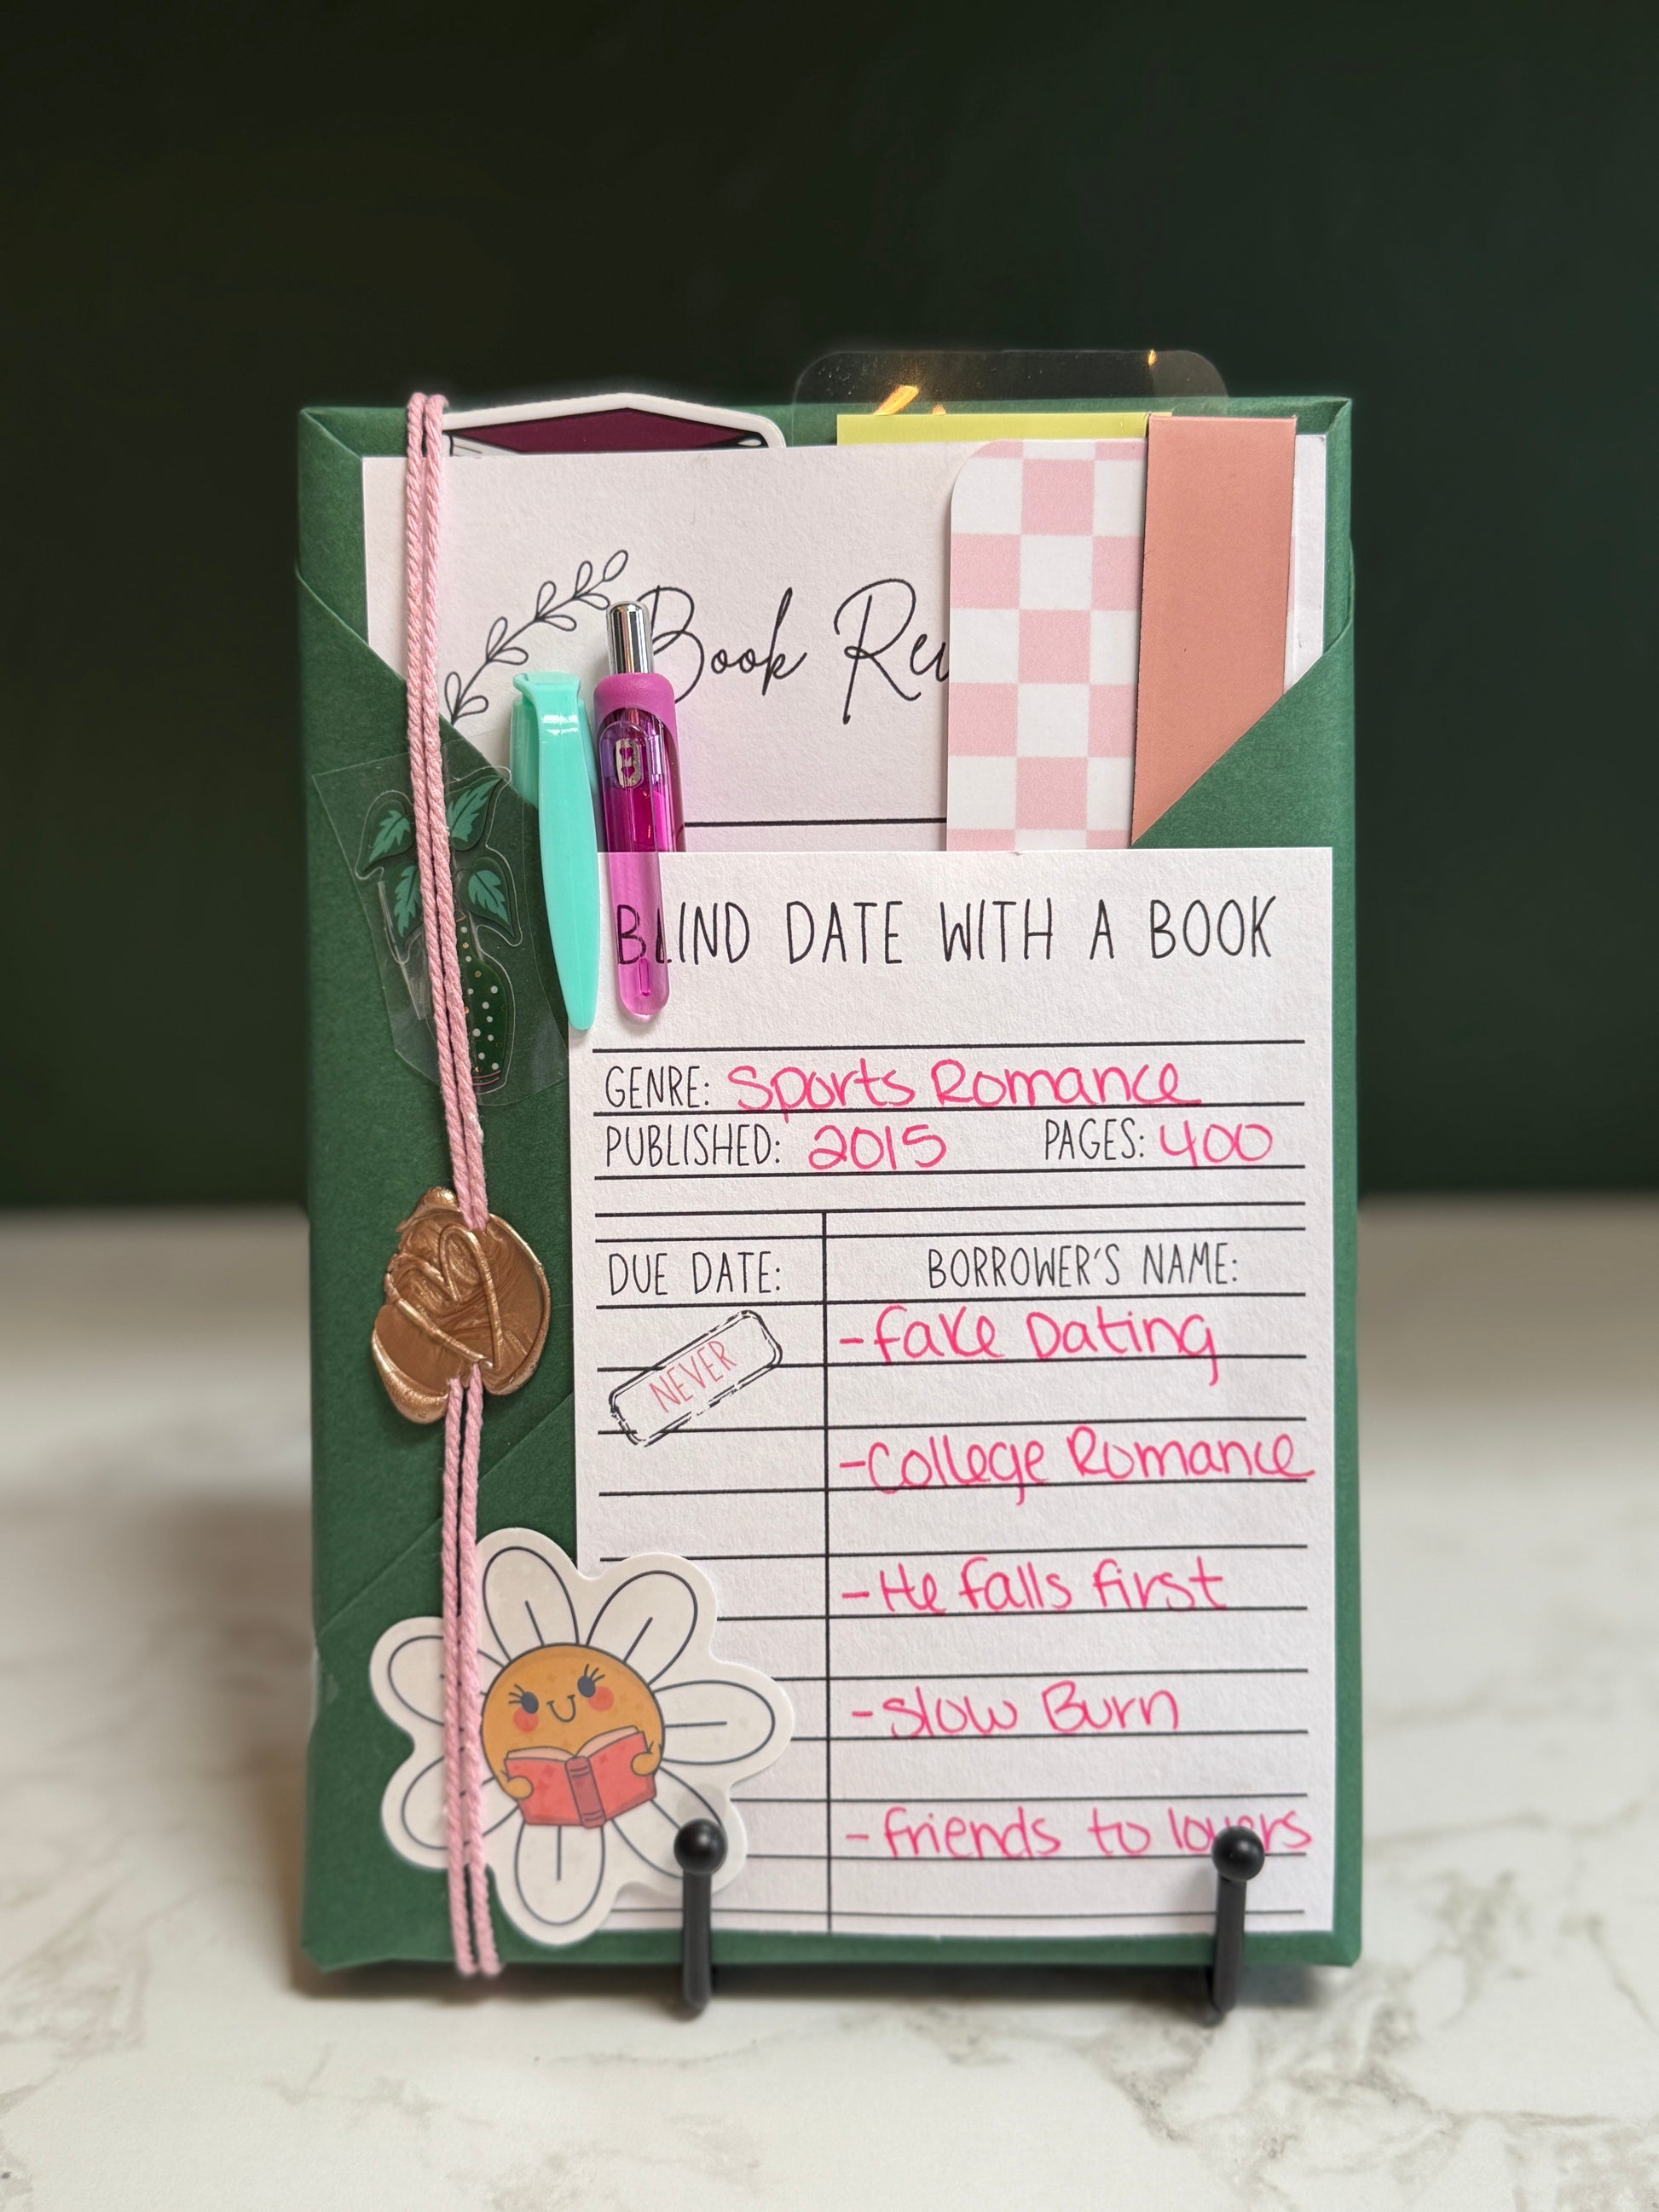 Book
BLIND DATE WITH A BOOK
GENRE: Sports Romance
PUBLISHED: 2015 PAGES: 400
DUE DATE: BORROWER'S NAME:
NEVER
-Fake Dating
-College Romance
-He falls first
-Slow Burn
-friends to lovers